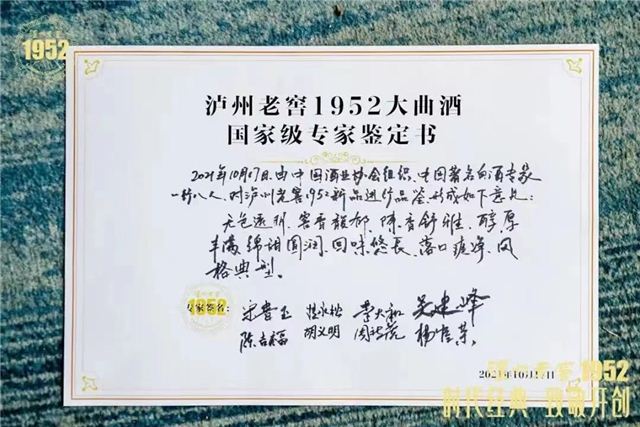 1952
泸州老窖1952大曲酒
国家级专家鉴定书
2021年10月17日由中国酒业协会组织、中国著名白酒专家
一行八人、对泸州老窖1952新品进行品鉴、形成如下意见:
无色透明、窖香馥郁、陈香舒雅、醇厚
丰满、绵甜圆润、回味悠长、落口爽净、风
格典型。
1952
专家签名: 李大和 吴建峰
陈吉福 胡义明 杨官荣
2021年10月17日
1952
时代经典 致敬开创